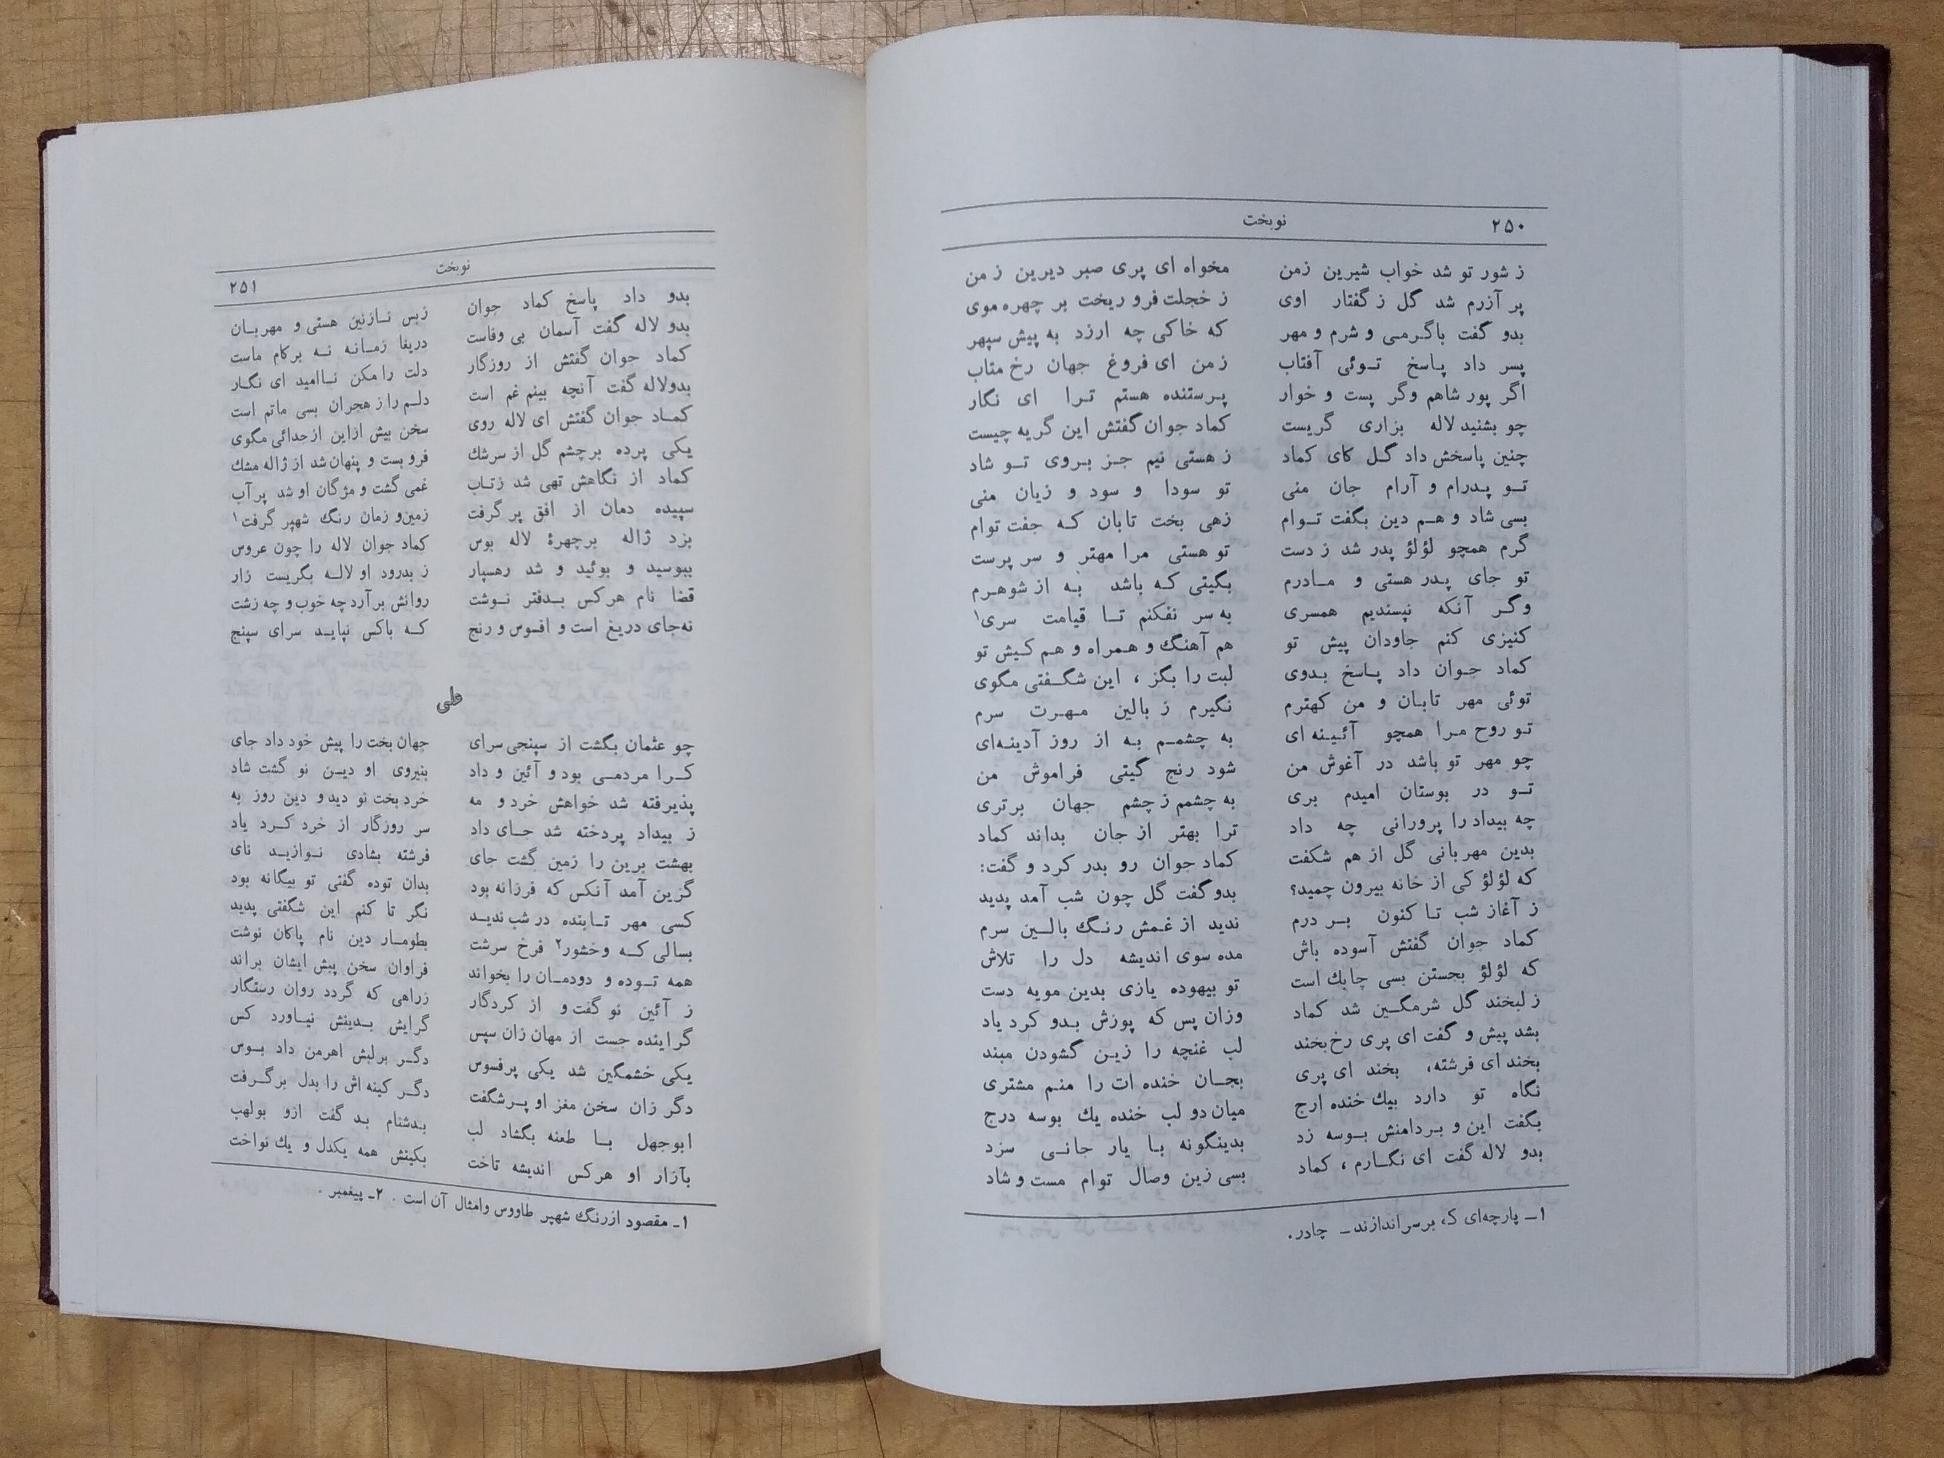 ۲۵۰ نوبخت
ز شور تو شد خواب شیرین زمن مخواه ای پری صبر دیرین ز من
پر آزرم شد گل ز گفتار اوی ز خجلت فرو ریخت بر چهره موی
بدو گفت باگرمی و شرم و مهر که خاکی چه ارزد به پیش سپهر
پسر داد پاسخ توئی آفتاب ز من ای فروغ جهان رخ متاب
اگر پور شاهم وگر پست و خوار پرستنده هستم ترا ای نگار
چو بشنید لاله بزاری گریست کماد جوان گفتش این گریه چیست
چنین پاسخش داد گل کای کماد ز هستی نیم جز بروی تو شاد
تو پدرام و آرام جان منی تو سودا و سود و زیان منی
بسی شاد و هم دین بگفت توام زهی بخت تابان که جفت توام
گرم همچو لؤلؤ پدر شد ز دست تو هستی مرا مهتر و سر پرست
تو جای پدر هستی و مادرم بگیتی که باشد به از شوهرم
وگر آنکه نپسندیم همسری به سر نفکنم تا قیامت سری۱
کنیزی کنم جاودان پیش تو هم آهنگ و همراه و هم کیش تو
کماد جوان داد پاسخ بدوی لبت را بگز ، این شگفتی مگوی
توئی مهر تابان و من کهترم نگیرم ز بالین مهرت سرم
تو روح مرا همچو آئینه ای به چشمم به از روز آدینه‌ای
چو مهر تو باشد در آغوش من شود رنج گیتی فراموش من
تو در بوستان امیدم بری به چشمم ز چشم جهان برتری
چه بیداد را پرورانی چه داد ترا بهتر از جان بداند کماد
بدین مهربانی گل از هم شکفت کماد جوان رو بدر کرد و گفت:
که لؤلؤ کی از خانه بیرون چمید؟ بدو گفت گل چون شب آمد پدید
ز آغاز شب تا کنون بر درم ندید از غمش رنگ بالین سرم
کماد جوان گفتش آسوده باش مده سوی اندیشه دل را تلاش
که لؤلؤ بجستن بسی چابك است تو بیهوده یازی بدین مویه دست
ز لبخند گل شرمگین شد کماد وزان پس که پوزش بدو کرد یاد
بشد پیش و گفت ای پری رخ بخند لب غنچه را زین گشودن مبند
بخند ای فرشته، بخند ای پری بجان خنده ات را منم مشتری
نگاه تو دارد بیك خنده ارج میان دو لب خنده یك بوسه درج
بگفت این و بردامنش بوسه زد بدینگونه با یار جانی سزد
بدو لاله گفت ای نگارم ، کماد بسی زین وصال توام مست و شاد
۱ـ پارچه‌ای که برسر اندازند ـ چادر.
نوبخت ۲۵۱
بدو داد پاسخ کماد جوان زبس نازنین هستی و مهربان
بدو لاله گفت آسمان بی وفاست دریغا زمانه نه برکام ماست
کماد جوان گفتش از روزگار دلت را مکن ناامید ای نگار
بدولاله گفت آنچه بینم غم است دلم را ز هجران بسی ماتم است
کماد جوان گفتش ای لاله روی سخن بیش ازاین ازجدائی مگوی
یکی پرده برچشم گل از سرشك فرو بست و پنهان شد از ژاله مشك
کماد از نگاهش تهی شد زتاب غمی گشت و مژگان او شد پر آب
سپیده دمان از افق پر گرفت زمین و زمان رنگ شهپر گرفت۱
بزد ژاله برچهرۀ لاله بوس کماد جوان لاله را چون عروس
ببوسید و بوئید و شد رهسپار ز بدرود او لاله بگریست زار
قضا نام هرکس بدفتر نوشت روانش بر آرد چه خوب و چه زشت
نه‌جای دریغ است و افسوس و رنج که باکس نپاید سرای سپنج
علی
چو عثمان بگشت از سپنجی سرای جهان بخت را پیش خود داد جای
کرا مردمی بود و آئین و داد بنیروی او دین نو گشت شاد
پذیرفته شد خواهش خرد و مه خرد بخت نو دید و دین روز به
ز بیداد پردخته شد جای داد سر روزگار از خرد کرد یاد
بهشت برین را زمین گشت جای فرشته بشادی نوازید نای
گزین آمد آنکس که فرزانه بود بدان توده گفتی تو بیگانه بود
کسی مهر تابنده در شب ندید نگر تا کنم این شگفتی پدید
بسالی که وخشور۲ فرخ سرشت بطومار دین نام پاکان نوشت
همه توده و دودمان را بخواند فراوان سخن پیش ایشان براند
ز آئین نو گفت و از کردگار زراهی که گردد روان رستگار
گراینده جست از مهان زان سپس گرایش بدینش نیاورد کس
یکی خشمگین شد یکی پرفسوس دگر برلبش اهرمن داد بوس
دگر زان سخن مغز او پرشگفت دگر کینه اش را بدل برگرفت
ابوجهل با طعنه بگشاد لب بدشنام بد گفت ازو بولهب
بآزار او هرکس اندیشه تاخت بکینش همه یکدل و یك نواخت
۱ـ مقصود ازرنگ شهپر طاووس وامثال آن است . ۲ـ پیغمبر .